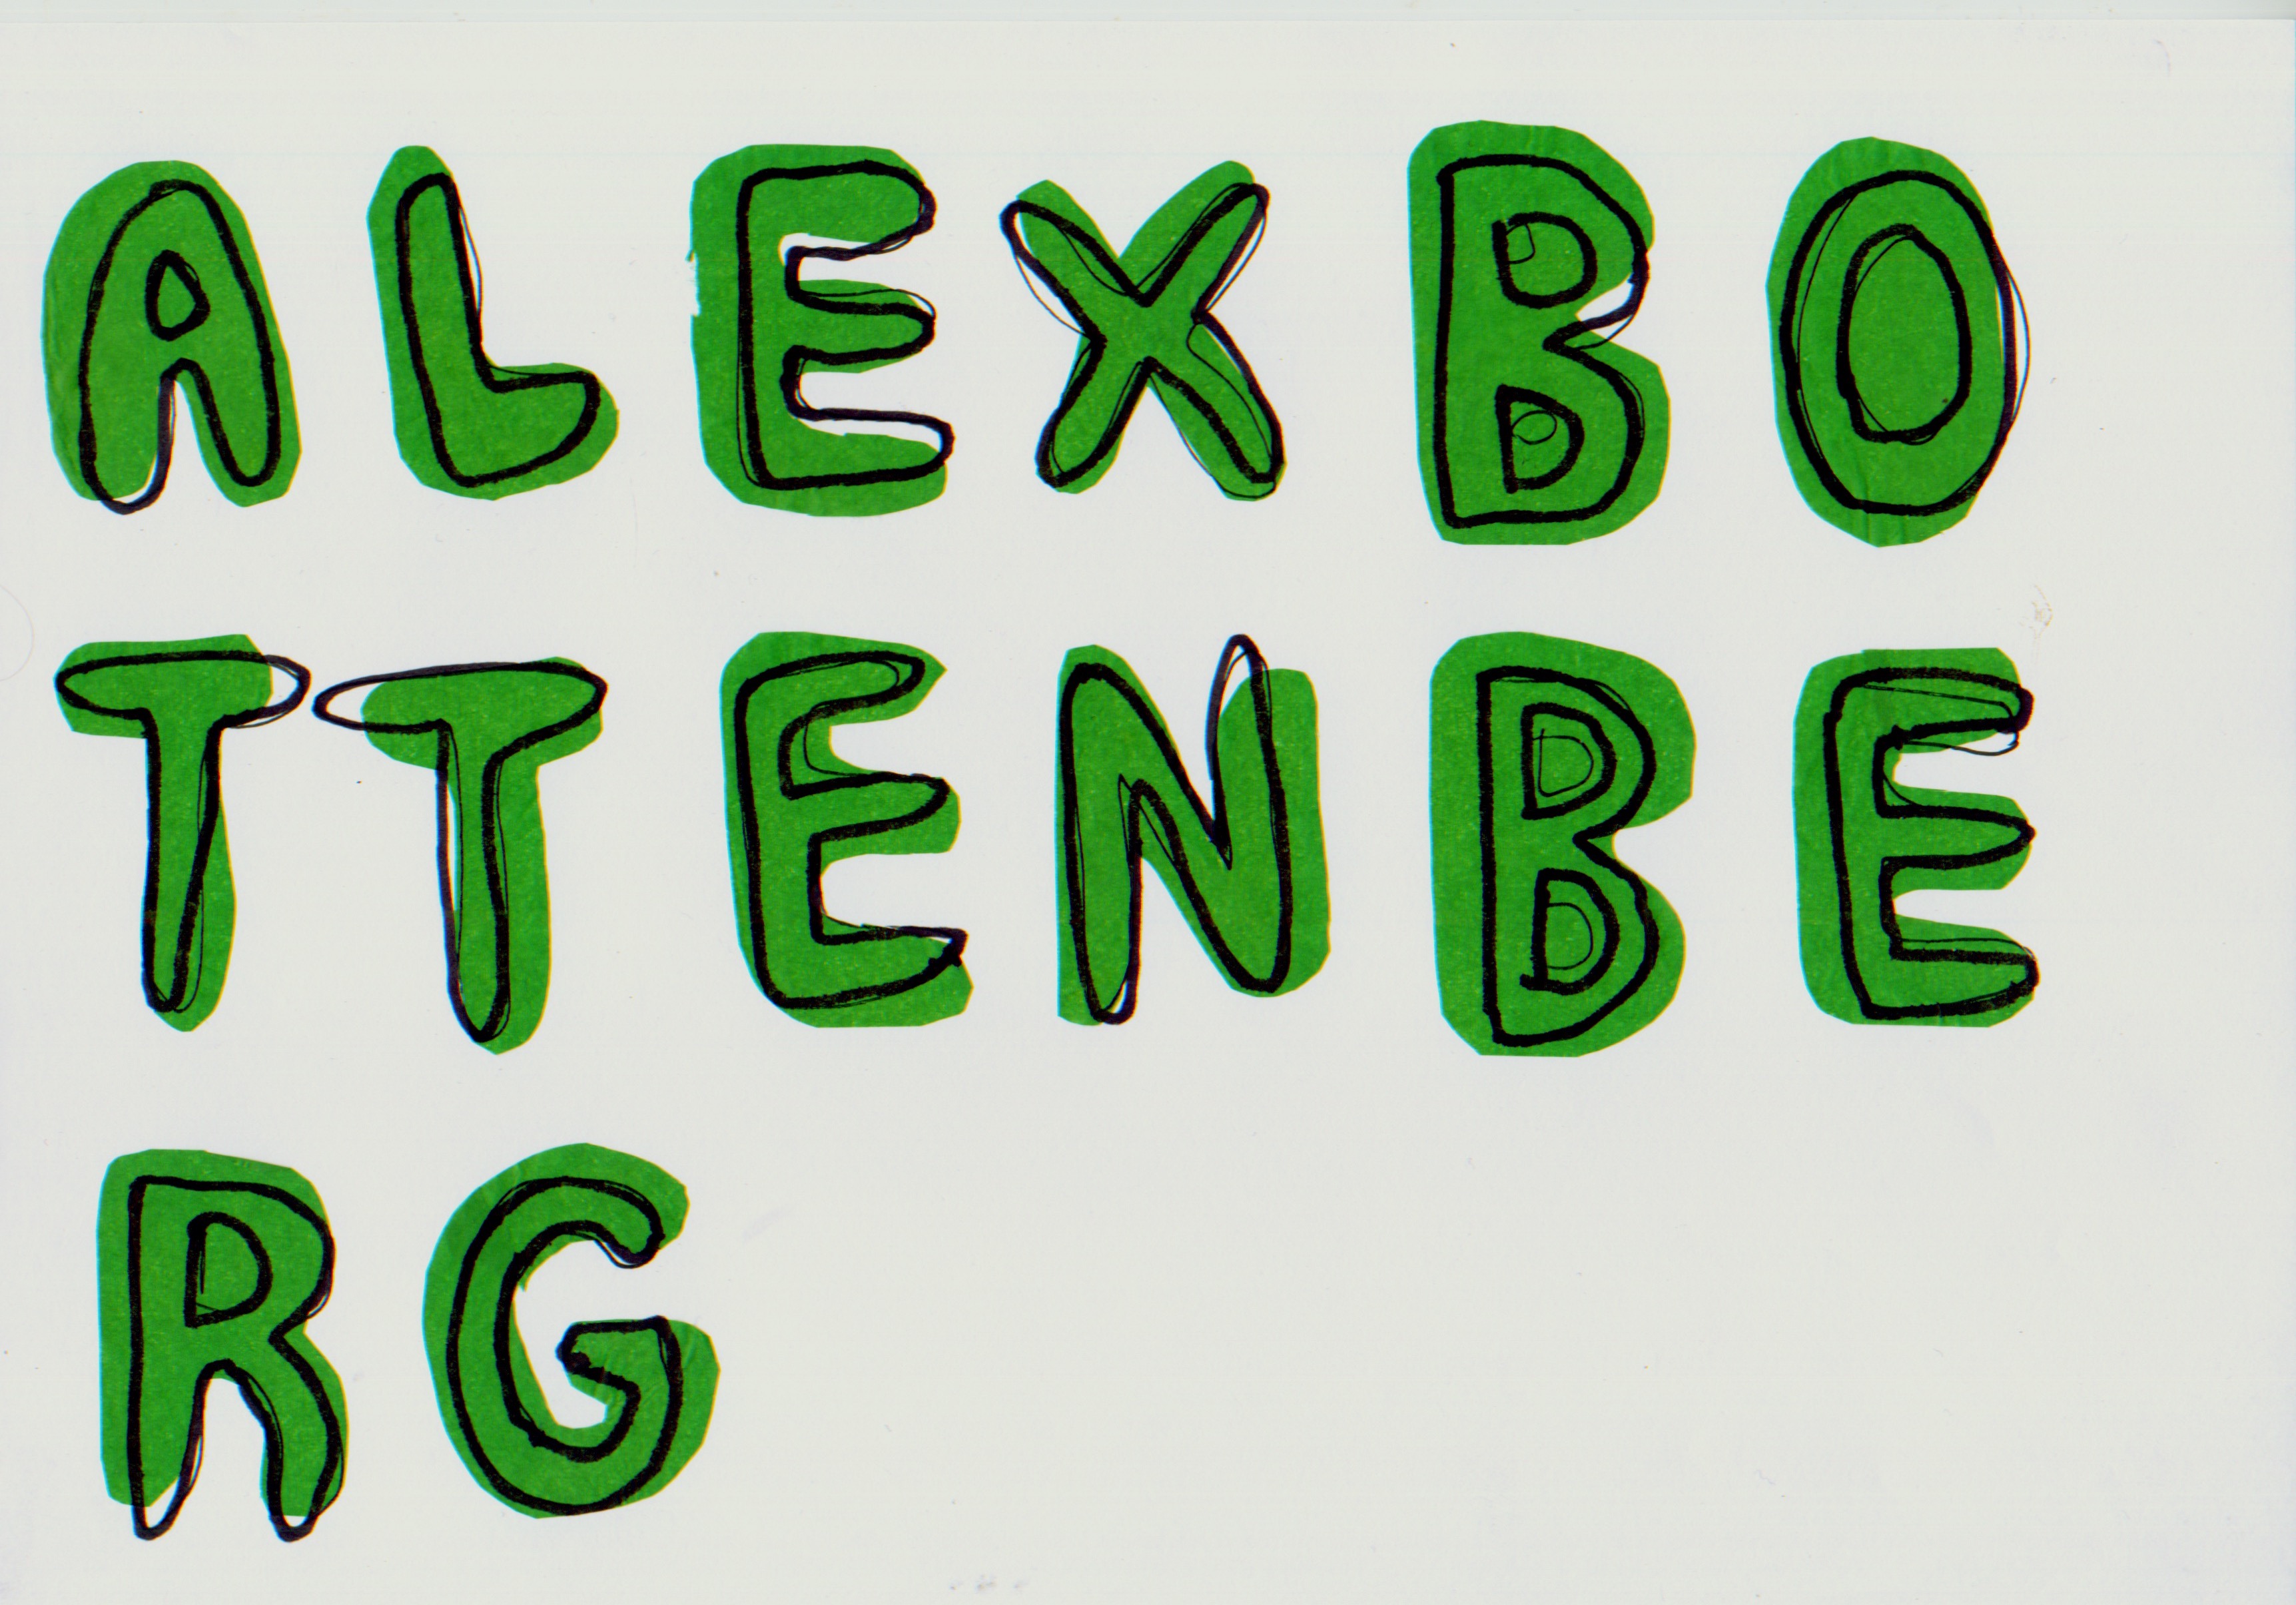 ALEXBO
TTENBE
RG